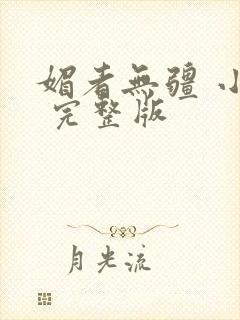 媚者無疆 小
完整版
月光流